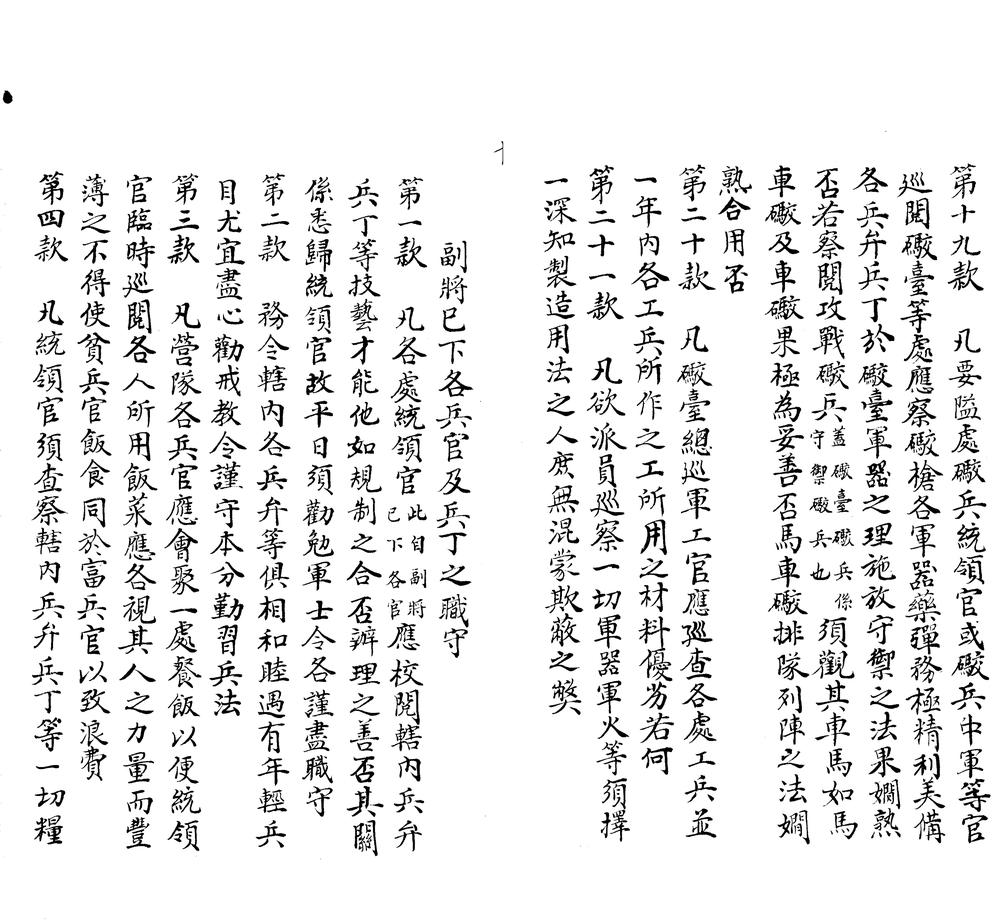 第十九款　凡要隘處礮兵統領官或礮兵中軍等官
巡閱礮臺等處應察礮槍各軍器藥彈務極精利美備
各兵弁兵丁於礮臺軍器之理施放守禦之法果嫺熟
否若察閱攻戰礮兵蓋礮臺礮兵係守禦礮兵也須觀其車馬如馬
車礮及車礮果極為妥善否馬車礮排隊列陣之法嫺
熟合用否
第二十款　凡礮臺總巡軍工官應巡查各處工兵並
一年內各工兵所作之工所用之材料優劣若何
第二十一款　凡欲派員巡察一切軍器軍火等須擇
一深知製造用法之人庶無混蒙欺蔽之獘
副將已下各兵官及兵丁之職守
第一款　凡各處統領官此自副將已下各官應校閱轄內兵弁
兵丁等技藝才能他如規制之合否辦理之善否其關
係悉歸統領官故平日須勸勉軍士令各謹盡職守
第二款　務令轄內各兵弁等俱相和睦遇有年輕兵
目尤宜盡心勸戒教令謹守本分勤習兵法
第三款　凡營隊各兵官應會聚一處餐飯以便統領
官臨時巡閱各人所用飯菜應各視其人之力量而豐
薄之不得使貧兵官飯食同於富兵官以致浪費
第四款　凡統領官須查察轄內兵弁兵丁等一切糧